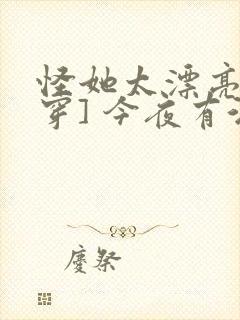 怪她太漂亮
穿] 今夜有
廖祭